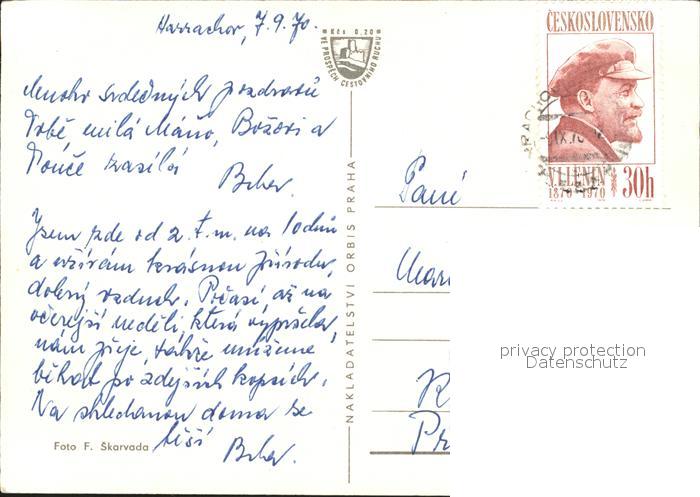 Harrachov, 7.9.70.
Mnoho srdečných pozdravů
Tobě milá Máňo, Boženi a
zasílá
Jsem zde od 2. t.m. na 10 dnů
a užívám krásnou přírodu,
dobrý vzduch. Počasí, až na
včerejší neděli, která vypršela,
nám přeje, takže můžeme
běhat po zdejších kopcích.
Na shledanou doma se
těší
Foto F. Škarvada
Kčs 0,20
VE PROSPĚCH CESTOVNÍHO RUCHU
NAKLADATELSTVÍ ORBIS PRAHA
ČESKOSLOVENSKO
V.I. LENIN
1870 1970
30h
Paní
K
Pr
privacy protection
Datenschutz